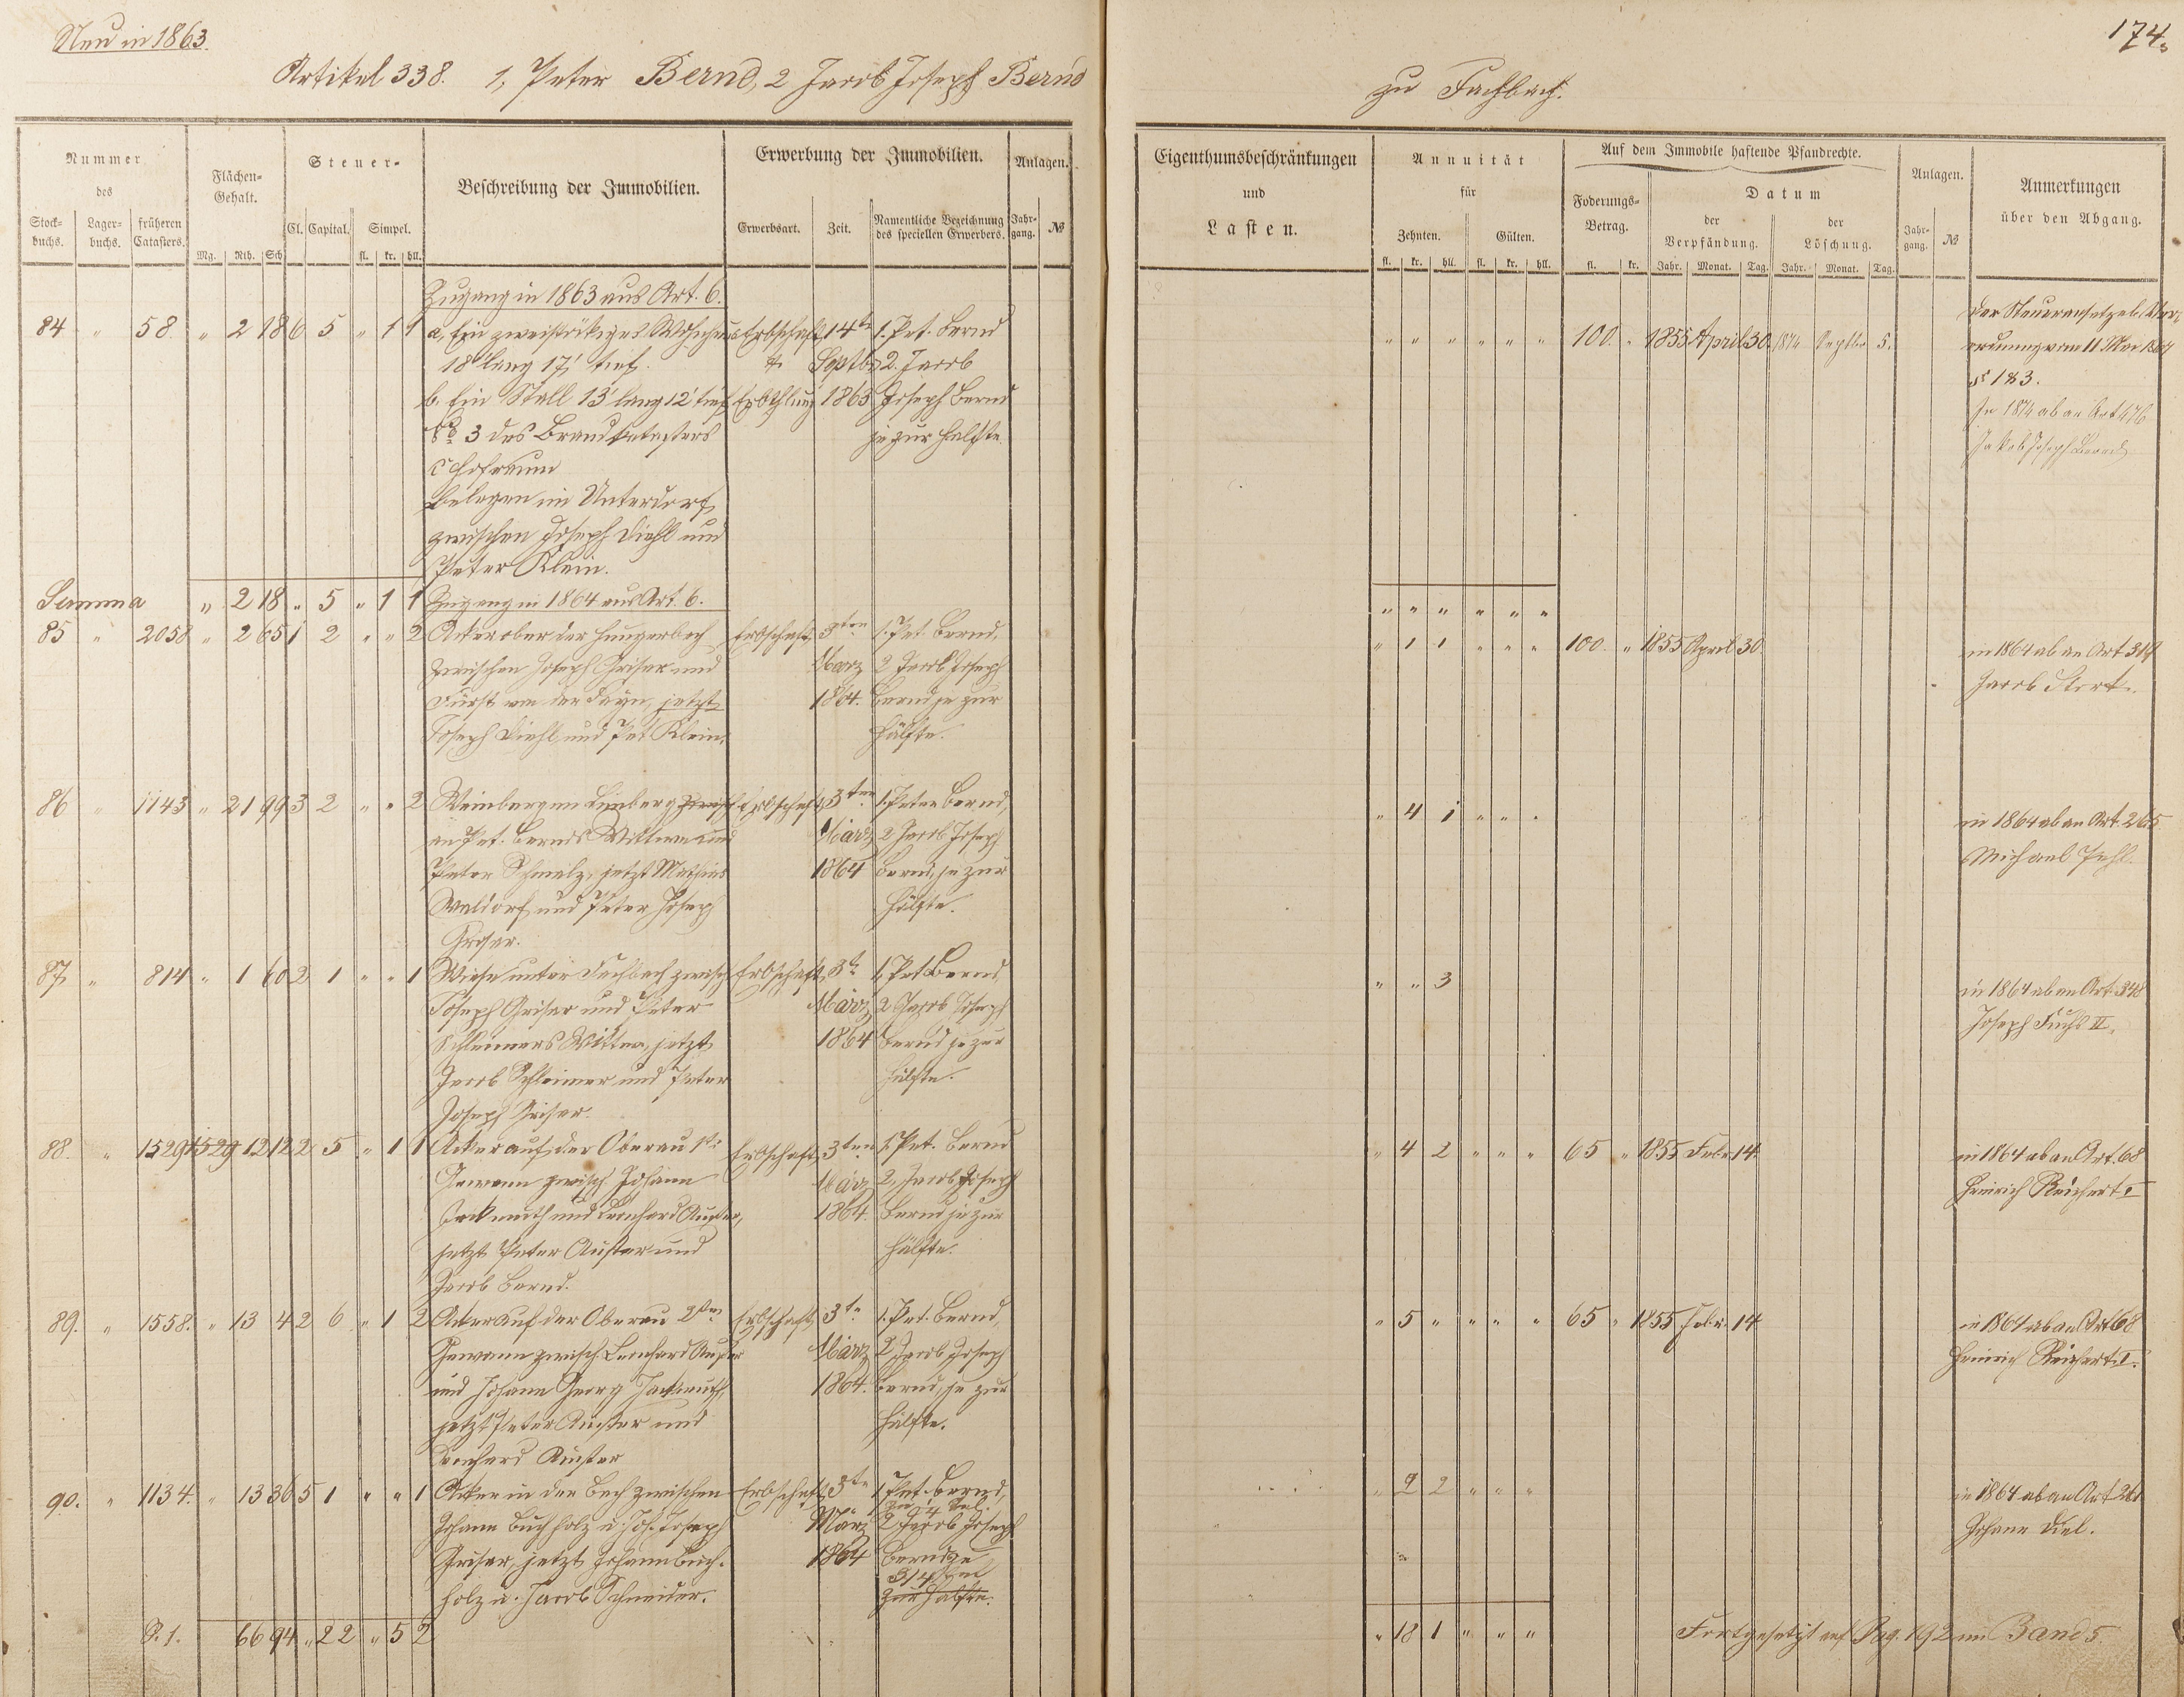 Neu in 1863.
174.
Artikel 338. 1, Peter Bernd, 2 Jacob Joseph Bernd
zu Fachbach.
Nummer des
Stockbuchs. Lagerbuchs. früheren Catasters.
Flächen-Gehalt.
Mg. Rth. Sch.
Steuer-
Cl. Capital. Simpel.
fl. kr. hll.
Beschreibung der Immobilien.
Erwerbung der Immobilien.
Erwerbsart. Zeit. Namentliche Bezeichnung des speciellen Erwerbers.
Anlagen.
Jahrgang. №
Eigenthumsbeschränkungen
und
Lasten.
Annuität
für
Zehnten. Gülten.
fl. kr. hll. fl. kr. hll.
Auf dem Immobile haftende Pfandrechte.
Foderungs-Betrag.
fl. kr.
Datum
der Verpfändung. der Löschung.
Jahr. Monat. Tag. Jahr. Monat. Tag.
Anlagen.
Jahrgang. №
Anmerkungen
über den Abgang.
Zugang in 1863 aus Art. 6.
84 " 58. " 2 18 6 5 " 1 1 a, Ein zweistökiges Wohnhaus Erbschaft 14te 1. Pet. Bernd
18' lang 17' tief. & Septbr 2. Jacob
b. Ein Stall 13' lang 12' tief Erbthlung 1863 Joseph Bernd
No 3 des Brandkatasters je zur Hälfte.
c Hofraum
belegen im Unterdorf,
zwischen Joseph Diehl und
Peter Klein.
" " " " " " 100. " 1855 April 30. 1874 Septbr 5.
§ 183.
In 1874 ab an Art 476
Jakob Joseph Bernd
Summa " 2 18 " 5 " 1 1 Zugang in 1864 aus Art. 6.
" " " " " "
85 " 2058 " 2 65 1 2 " " 2 Acker ober der Hungerbach Erbschaft, 3ten 1. Pet. Bernd,
zwischen Joseph Griser und März 2 Jacob Joseph
Fürst von der Leyn, jetzt 1864. Bernd je zur
Joseph Diehl und Pet Klein, Hälfte.
" 1 1 " " " 100. " 1855 April 30 in 1864 ab an Art 319
Jacob
86 " 1143 " 21 99 3 2 " " 2 Weinberg am zwisch Erbschaft, 3ten 1. Peter Bernd,
an Pet. Bernds Wittwe und März 2 Jacob Joseph
Peter Schmelz, jetzt Mathias 1864 Bernd, je zur
Waldorf und Peter Joseph Hälfte.
Griser.
" 4 1 " " " in 1864 ab an Art. 265
Michael
87, " 814 " 1 60 2 1 " " 1 Wiese unter Fachbach zwisch Erbschaft, 3te 1, Pet Bernd,
Joseph Griser und Peter März 2 Jacob Joseph
Schleimers Wittwe, jetzt 1864 Bernd je zur
Jacob Schleimer und Peter Hälfte.
Joseph Griser.
" " 3 in 1864 ab an Art. 348
Joseph Fuchs II.
88. " 1529 1529 12 12 2 5 " 1 1 Acker auf der Oberau 1te Erbschaft, 3ten 1. Pet. Bernd
Gewann zwisch Johann März 2, Jacob Joseph
Jackmuth und Leonhard Auster, 1864. Bernd je zur
jetzt Peter Auster und Hälfte.
Jacob Bernd.
" 4 2 " " " 65 " 1855 Febr. 14. in 1864 ab an Art. 68
Heinrich Reichert I
89. " 1558. " 13 4 2 6 " 1 2 Acker auf der Oberau 2ten Erbschaft, 3te 1. Pet. Bernd,
Gewann zwisch Leonhard Auster März 2 Jacob Joseph
und Johann Georg Jackmuth, 1864. Bernd, je zur
jetzt Peter Auster und Hälfte.
Leonhard Auster
" 5 " " " " 65 " 1855 Febr. 14 in 1864 ab an Art 68
Heinrich Reichert I.
90. " 1134. " 13 36 5 1 " " 1 Acker in der Bach zwischen Erbschaft, 3te 1, Pet. Bernd,
zu 1/4 tel.
Johann Buchholz u. Jos. Joseph März 2 Jacob Joseph
Griser, jetzt Johann Buch- 1864 Bernd zu
3/4 tel
holz u. Jacob Schneider. zur Hälfte.
" 9 2 " " " in 1864 ab an Art 261
Johann Diel.
S. 1. 66 94 " 22 " 5 2
" 18 1 " " " Fortgesetzt auf Pag. 192 im Band 5.